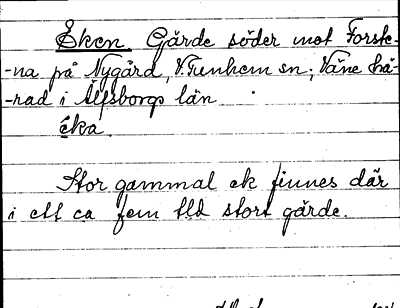 Eken. Gärde söder mot Forste-
-na på Nygård, V. Tunhem sn; Väne hä-
-rad i Älfsborgs län
éka.
Stor gammal ek finnes där
i ett ca fem tld stort gärde.